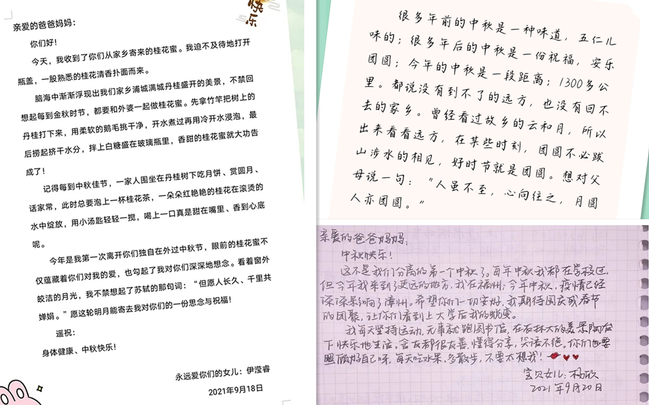 快乐
亲爱的爸爸妈妈：
你们好！
今天，我收到了你们从家乡寄来的桂花蜜。我迫不及待地打开
瓶盖，一股熟悉的桂花清香扑面而来。
脑海中渐渐浮现出我们家乡浦城满城丹桂盛开的美景，不禁回
想起每到金秋时节，都要和外婆一起做桂花蜜。先拿竹竿把树上的
丹桂打下来，用柔软的鹅毛挑干净，开水煮过再用冷开水浸泡，最
后捞起挤干水分，拌上白糖盛在玻璃里，香甜的桂花蜜就大功告
成了！
记得每到中秋佳节，一家人围坐在丹桂树下吃月饼、赏圆月、
话家常，此时总要泡上一杯桂花茶，一朵朵红艳艳的桂花在滚烫的
水中绽放，用小汤匙轻轻一搅，喝上一口真是甜在嘴里、香到心底
呢。
今年是我第一次离开你们独自在外过中秋节，眼前的桂花蜜不
仅蕴藏着你们对我的爱，也勾起了我对你们深深地想念。看着窗外
皎洁的月光，我不禁想起了苏轼的那句词：“但愿人长久，千里共
婵娟。”愿这轮明月能寄去我对你们的一份思念与祝福！
遥祝：
身体健康、中秋快乐！
永远爱你们的女儿：伊滢睿
2021年9月18日
很多年前的中秋是一种味道，五仁儿
味的；很多年后的中秋是一份祝福，安乐
团圆；今年的中秋是一段距离；1300多公
里。都说没有到不了的远方，也没有回不
去的家乡。曾经看过故乡的云和月，所以
出来看看远方，在某些时刻，团圆不必跋
山涉水的相见，好时节就是团圆。想对父
母说一句：“人虽不至，心向往之，月圆
人亦团圆。”
亲爱的爸爸妈妈：
中秋快乐！
这不是我们分离的第一个中秋了。每年中秋我都在学校过
但今年我来到了更远的地方，我在福州，今年中秋，疫情已经
深深影响了漳州，希望你们一切安好，我期待国庆或春节
的团聚，让你们看到上大学后我的蜕变。
我每天坚持运动，无事就跑图书馆，在农林大的美景陶冶
下快乐地生活，舍友都很友善，懂得分享，笑语不绝。你们也要
照顾好自己呀，每天吃水果，多散步，不要太想我！
宝贝女儿：杨欣
2021年9月20日